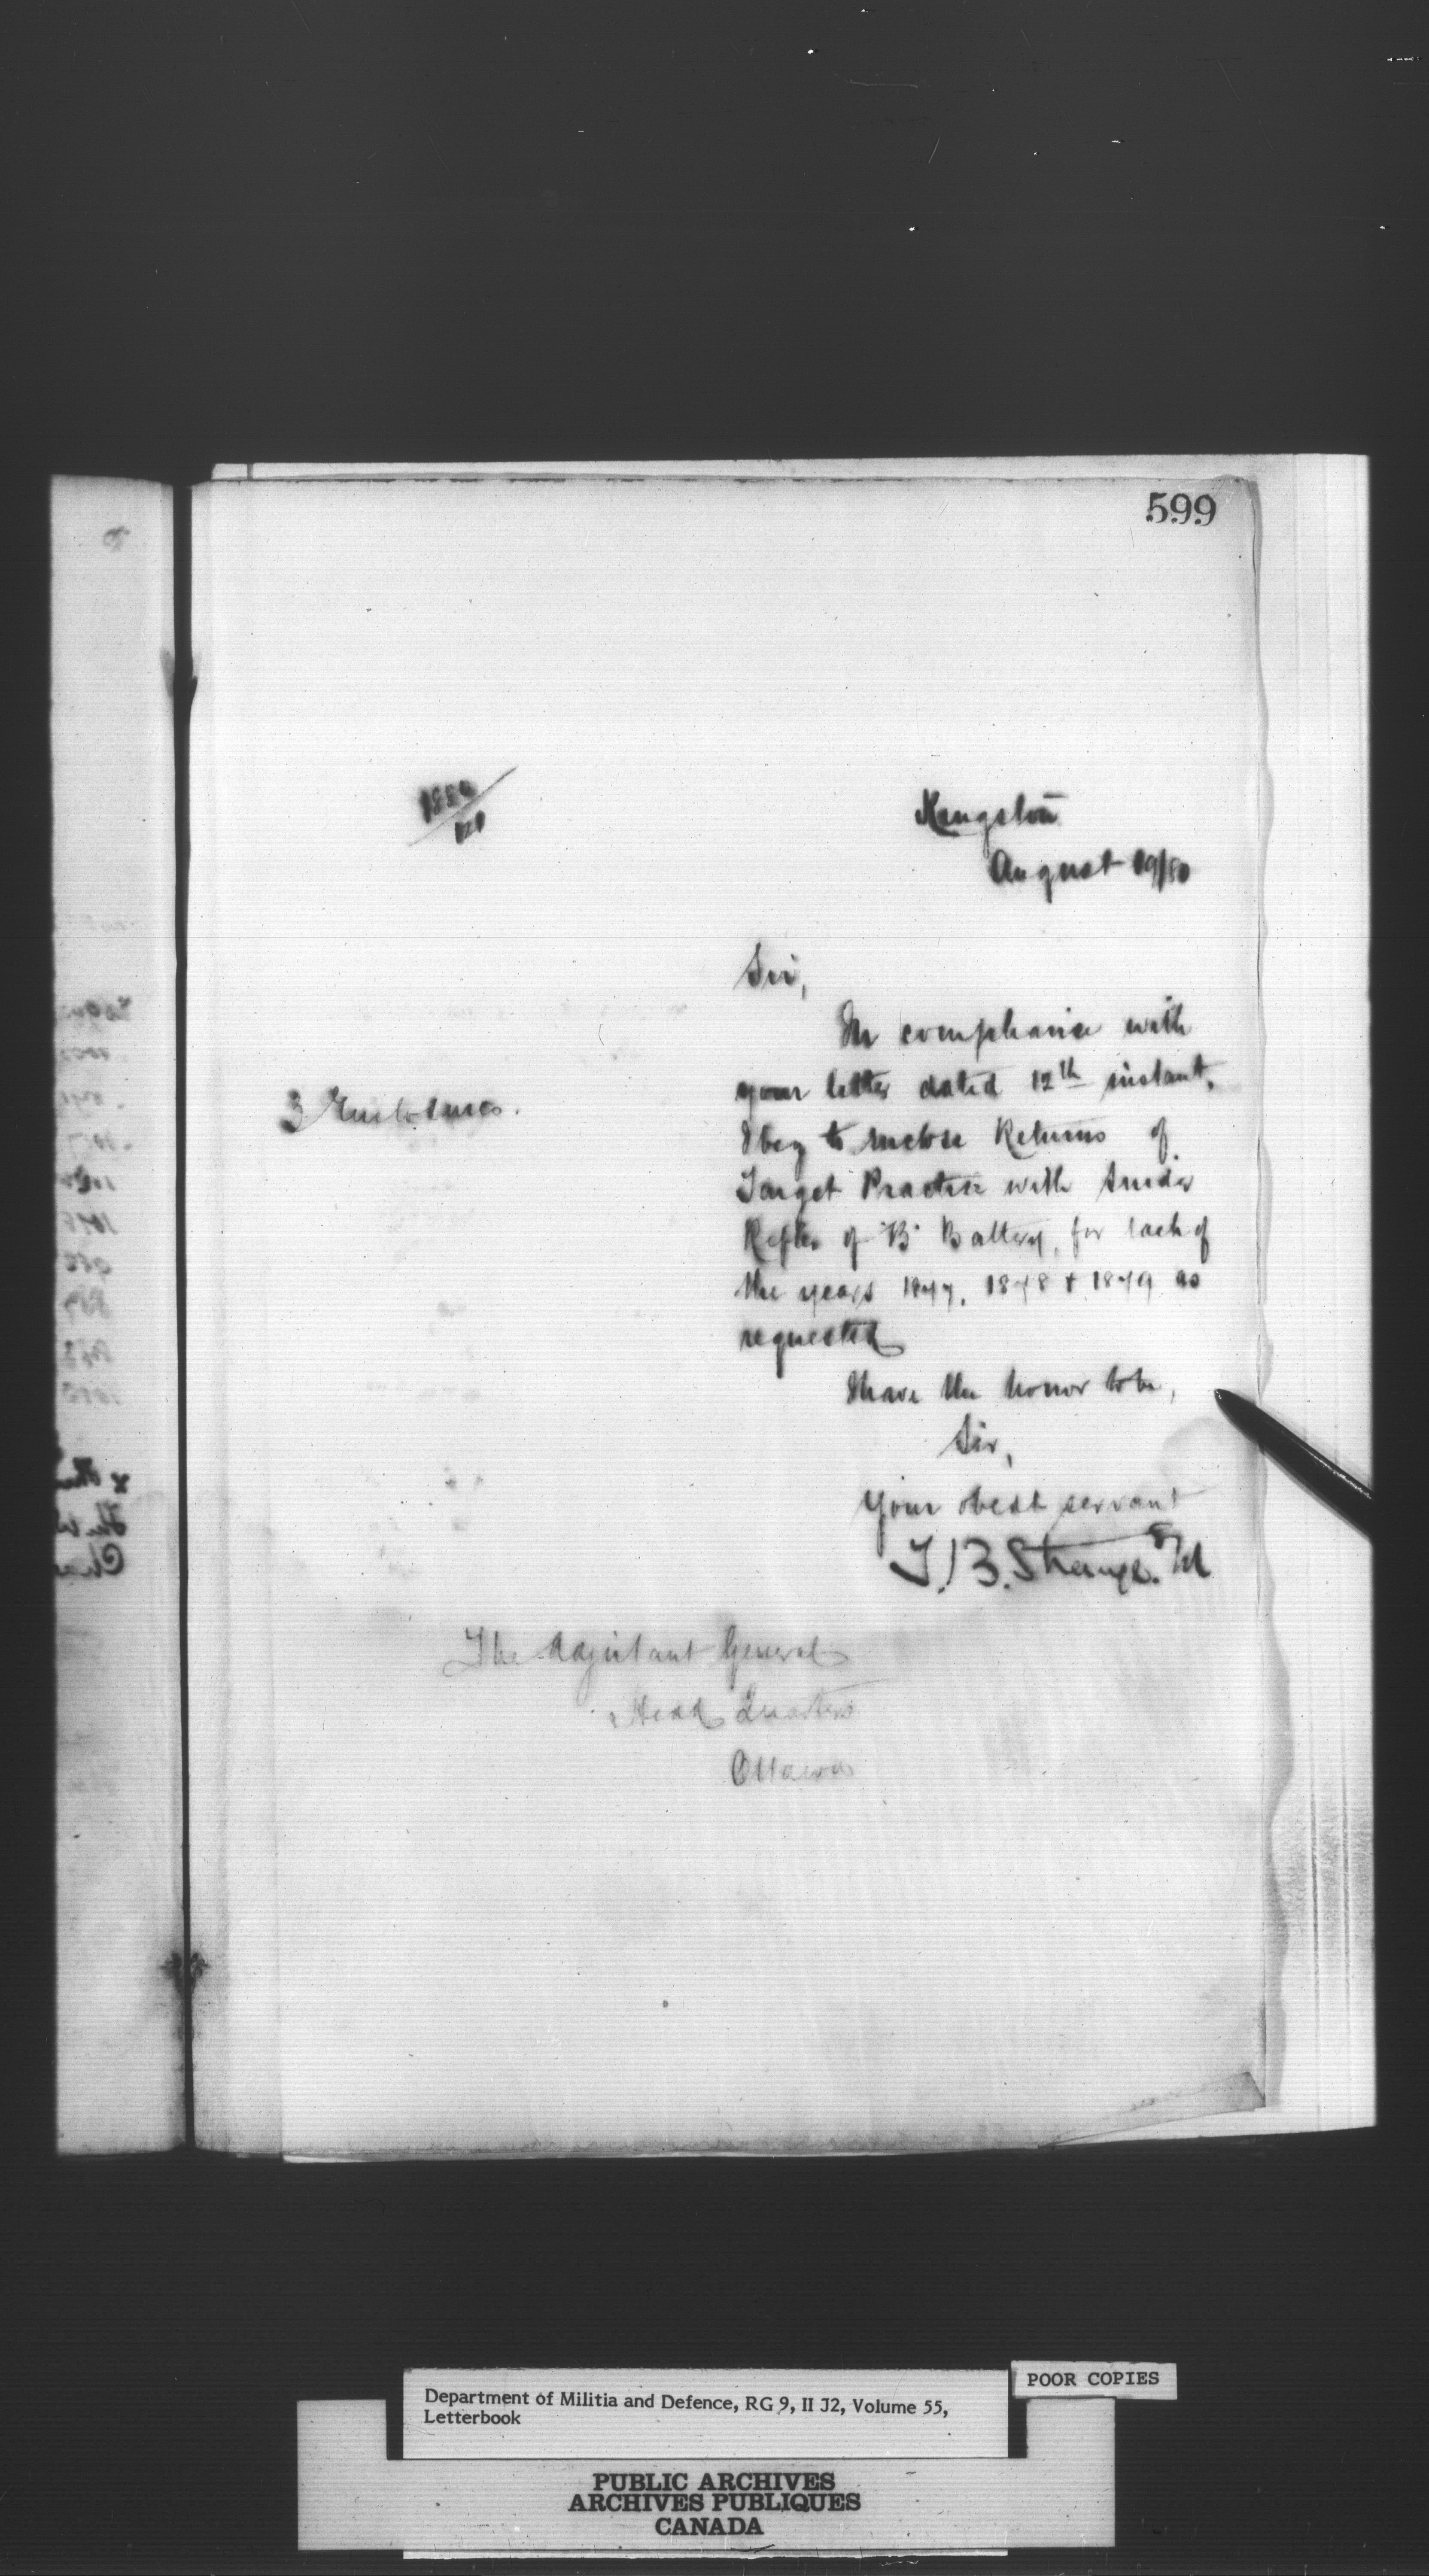 599
Kingston
August 19/80
Sir,
In compliance with
your letter dated 12th instant,
3 Enclosures.
I beg to enclose Returns of
Target Practice with Snider
Rifles of "B" Battery, for each of
the years 1877, 1878 & 1879 as
requested
I have the honor to be,
Sir,
Your obedt servant
T.B. Strange.
The Adjutant General
Head Quarters
Ottawa
POOR COPIES
Department of Militia and Defence, RG 9, II J2, Volume 55,
Letterbook
PUBLIC ARCHIVES
ARCHIVES PUBLIQUES
CANADA